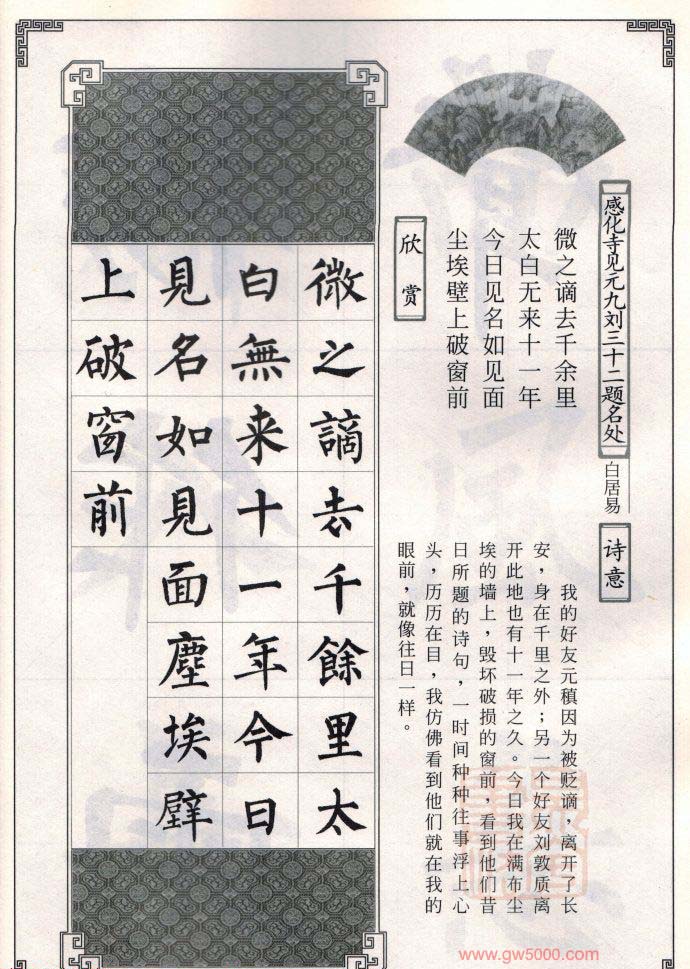 感化寺见元九刘三十二题名处
白居易
微之谪去千余里
太白无来十一年
今日见名如见面
尘埃壁上破窗前
诗意
我的好友元稹因为被贬谪，离开了长
安，身在千里之外；另一个好友刘敦质离
开此地也有十一年之久。今日我在满布尘
埃的墙上，毁坏破损的窗前，看到他们昔
日所题的诗句，一时间种种往事浮上心
头，历历在目，我仿佛看到他们就在我的
眼前，就像往日一样。
欣赏
微之謫去千餘里太
白無来十一年今日
見名如見面塵埃壁
上破窗前
www.gw5000.com